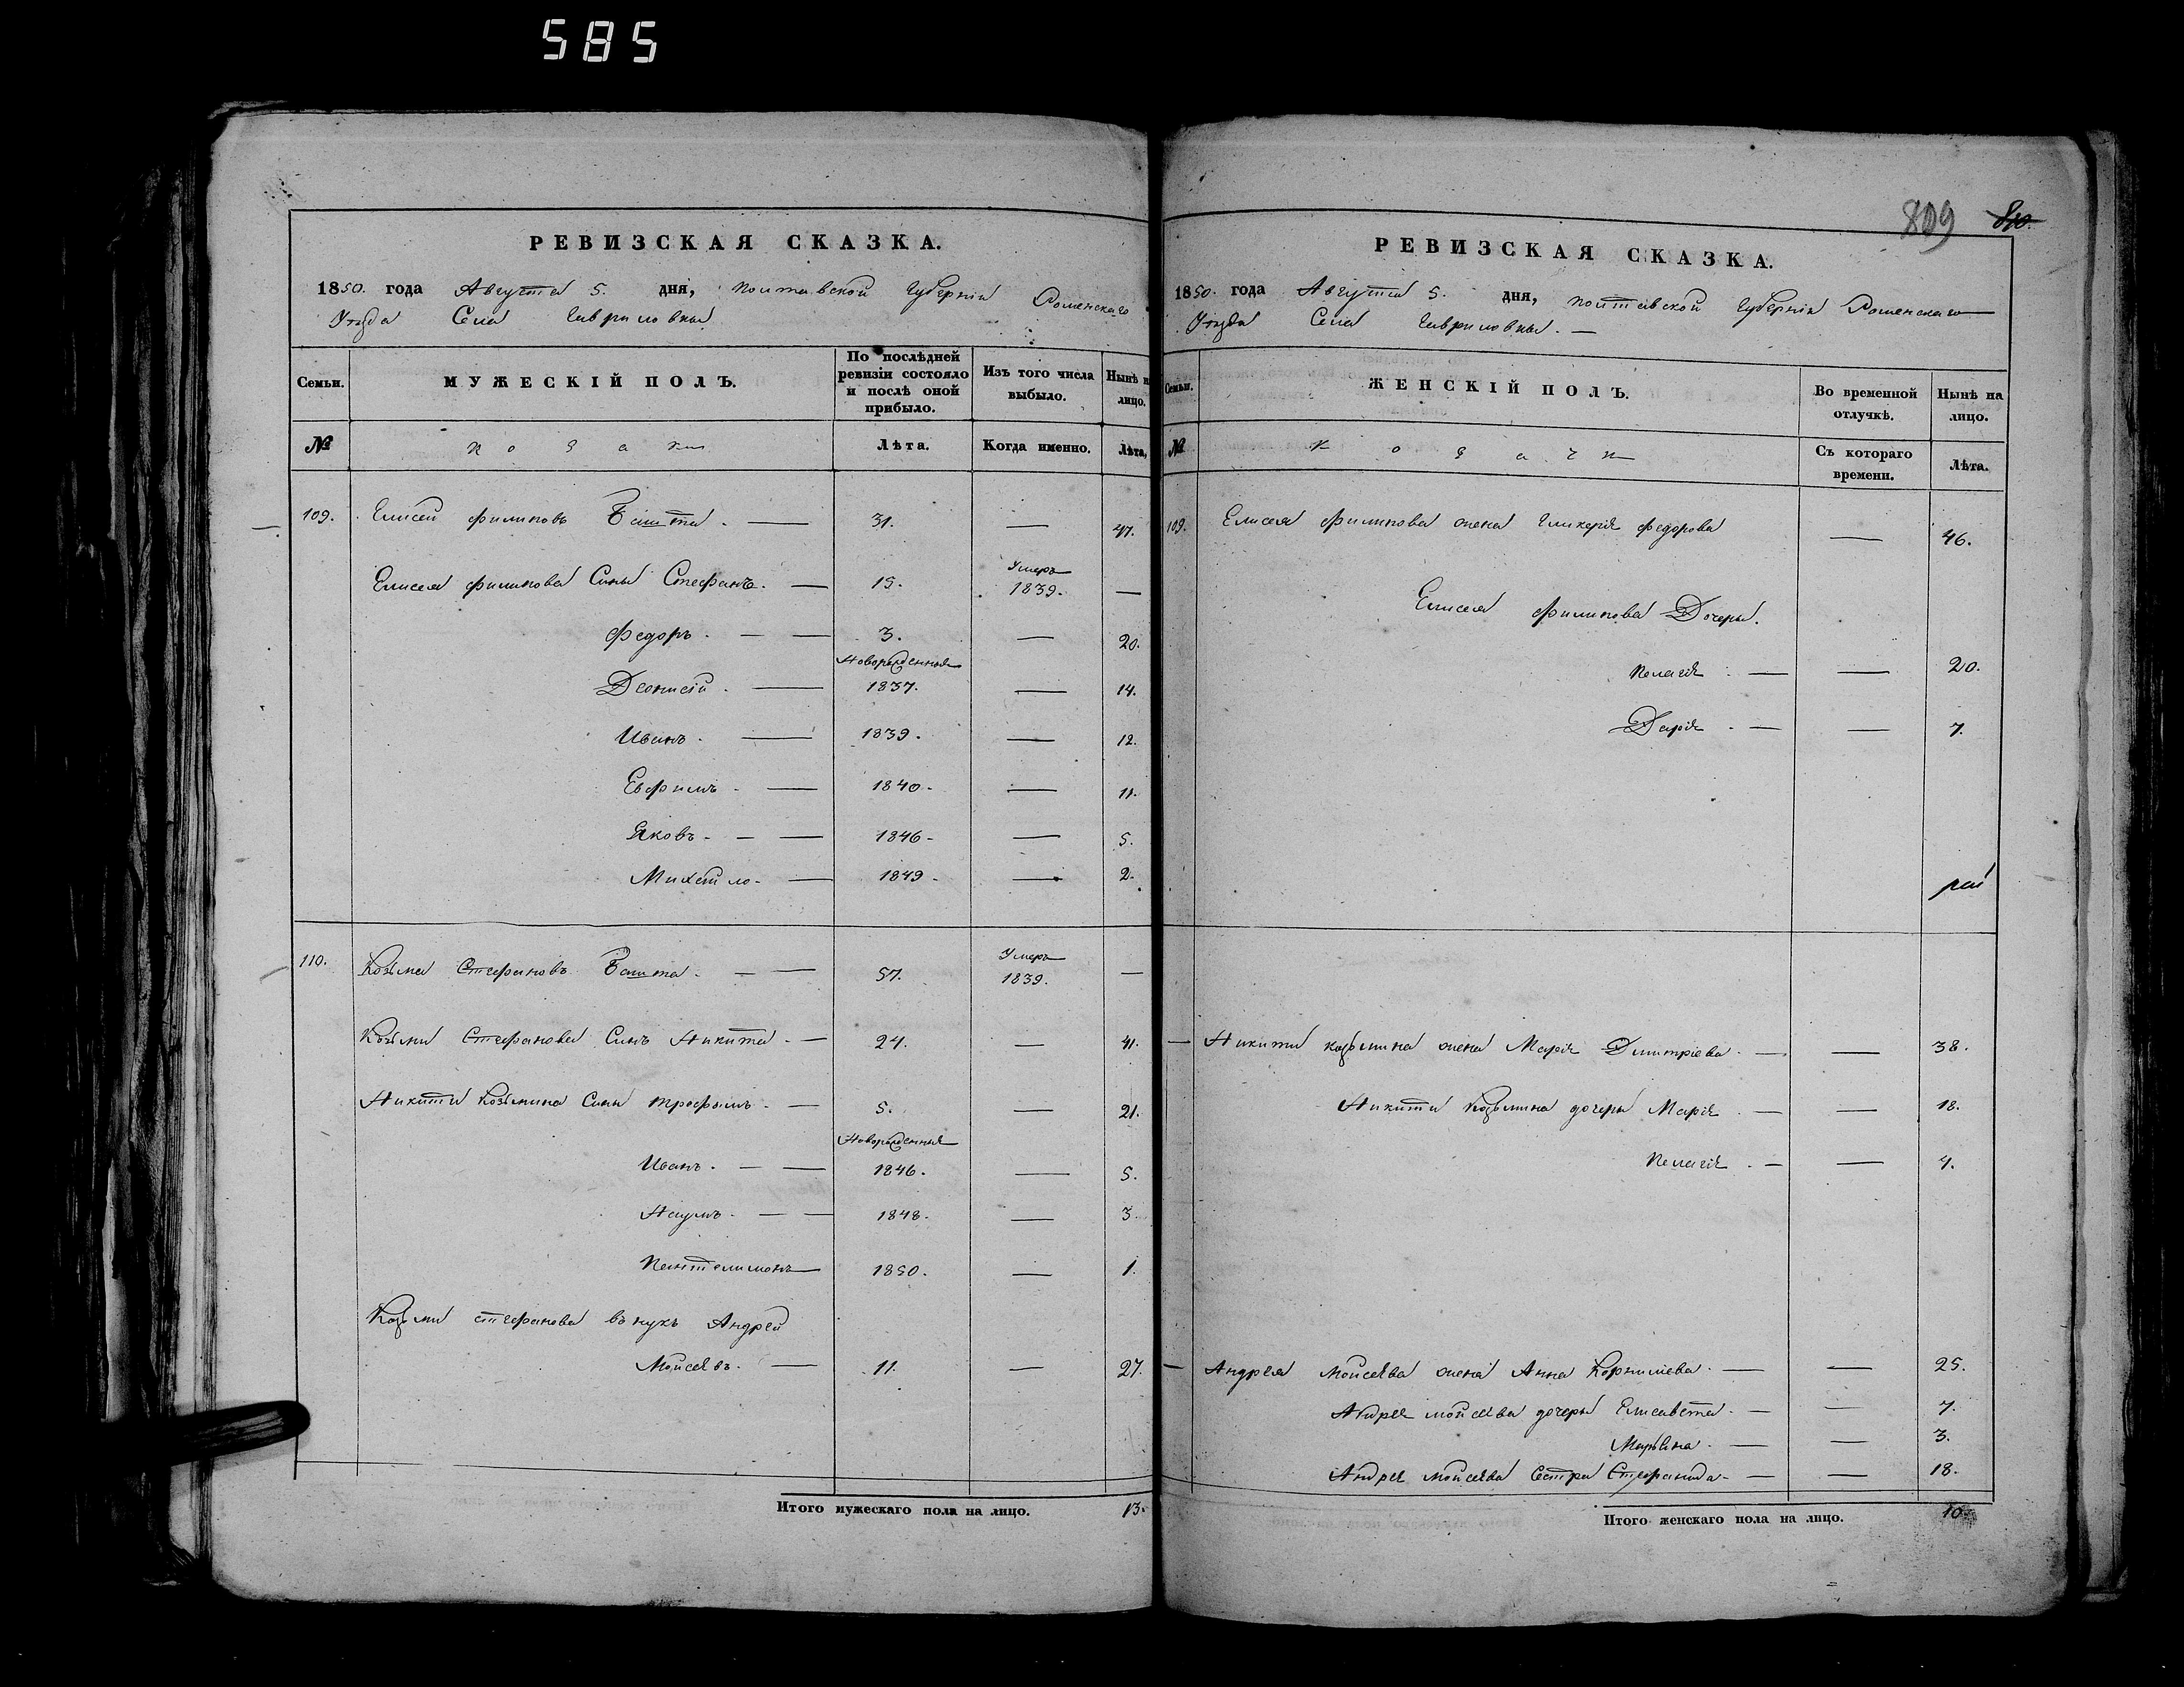 585
РЕВИЗСКАЯ СКАЗКА.
1850. года Августа 5. дня, Полтавской Губерніи Роменскаго
Уѣзда Села Гавриловки
Семьи.
МУЖЕСКІЙ ПОЛЪ.
По послѣдней ревизіи состояло и послѣ оной прибыло.
Изъ того числа выбыло.
Нынѣ на лицо.
№
Козаки
Лѣта.
Когда именно.
Лѣта.
109. Елисей Филиповъ Башта. — 31. — 47.
Елисея Филипова Сины Стефанъ. — 15. Умеръ 1839. —
Федоръ. — — 3. — 20.
Новорожденныя
Деонисій. — 1837. — 14.
Иванъ. — 1839. — 12.
Евфимъ. — 1840. — 11.
Яковъ. — — 1846. — 5.
Михайло. — 1849. — 2.
110. Козьма Стефановъ Башта. — — 57. Умеръ 1839. —
Козьми Стефанова Синъ Никита. — 24. — 41.
Никити Козьмина Сины Трофимъ. — 5. — 21.
Новорожденныя
Иванъ. — — 1846. — 5.
Наумъ. — — 1848. — 3.
Пантелимонъ — 1850. — 1.
Козьми Стефанова внукъ Андрей
Мойсеевъ. — 11. — 27.
Итого мужескаго пола на лицо. 13.
809 810
РЕВИЗСКАЯ СКАЗКА.
1850. года Августа 5. дня, Полтавской Губерніи Роменскаго
Уѣзда Села Гавриловки. —
Семьи.
ЖЕНСКІЙ ПОЛЪ.
Во временной отлучкѣ.
Нынѣ на лицо.
№
Козачки
Съ котораго времени.
Лѣта.
109. Елисея Филипова жена Гликерія Федорова — 46.
Елисея Филипова Дочеры.
Пелагія. — — 20.
Дарія. — — 7.
— Никити Козьмина жена Марія Димитріева. — — 38.
Никити Козьмина дочеры Марія. — — 18.
Пелагія. — — 4.
— Андрея Мойсеева жена Анна Корнилиева. — — 25.
Андрея Мойсеева дочеры Елисавета. — — 7.
Марьяна. — — 3.
Андрея Мойсеева Сестра Стефанида. — — 18.
Итого женскаго пола на лицо. 10.